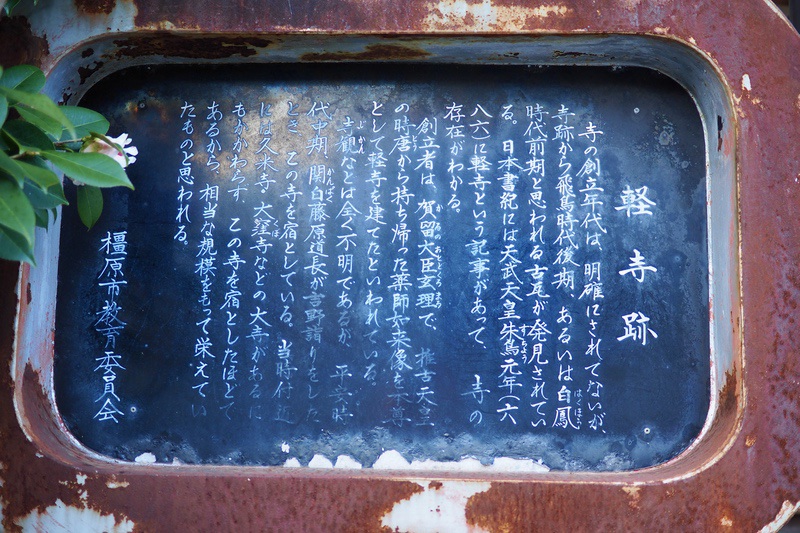 軽寺跡
寺の創立年代は、明確にされてないが、
寺跡から飛鳥時代後期、あるいは白鳳
時代前期と思われる古瓦が発見されてい
る。日本書紀には天武天皇朱鳥元年(六
八六に軽寺という記事があって、寺の
存在がわかる。
創立者は、賀留大臣玄理で、推古天皇
の時唐から持ち帰った薬師如来像を本尊
として軽寺を建てたといわれている。
寺観などは全く不明であるが、平安時
代中期、関白藤原道長が吉野詣りをした
とき、この寺を宿としている。当時付近
には久米寺・大窪寺などの大寺があるに
もかかわらず、この寺を宿としたほどで
あるから、相当な規模をもって栄えてい
たものと思われる。
橿原市教育委員会